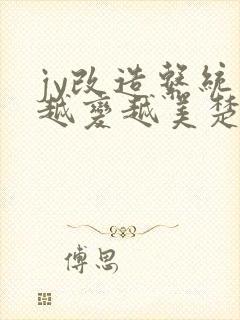 jy改造系統
越變越美楚
傅思